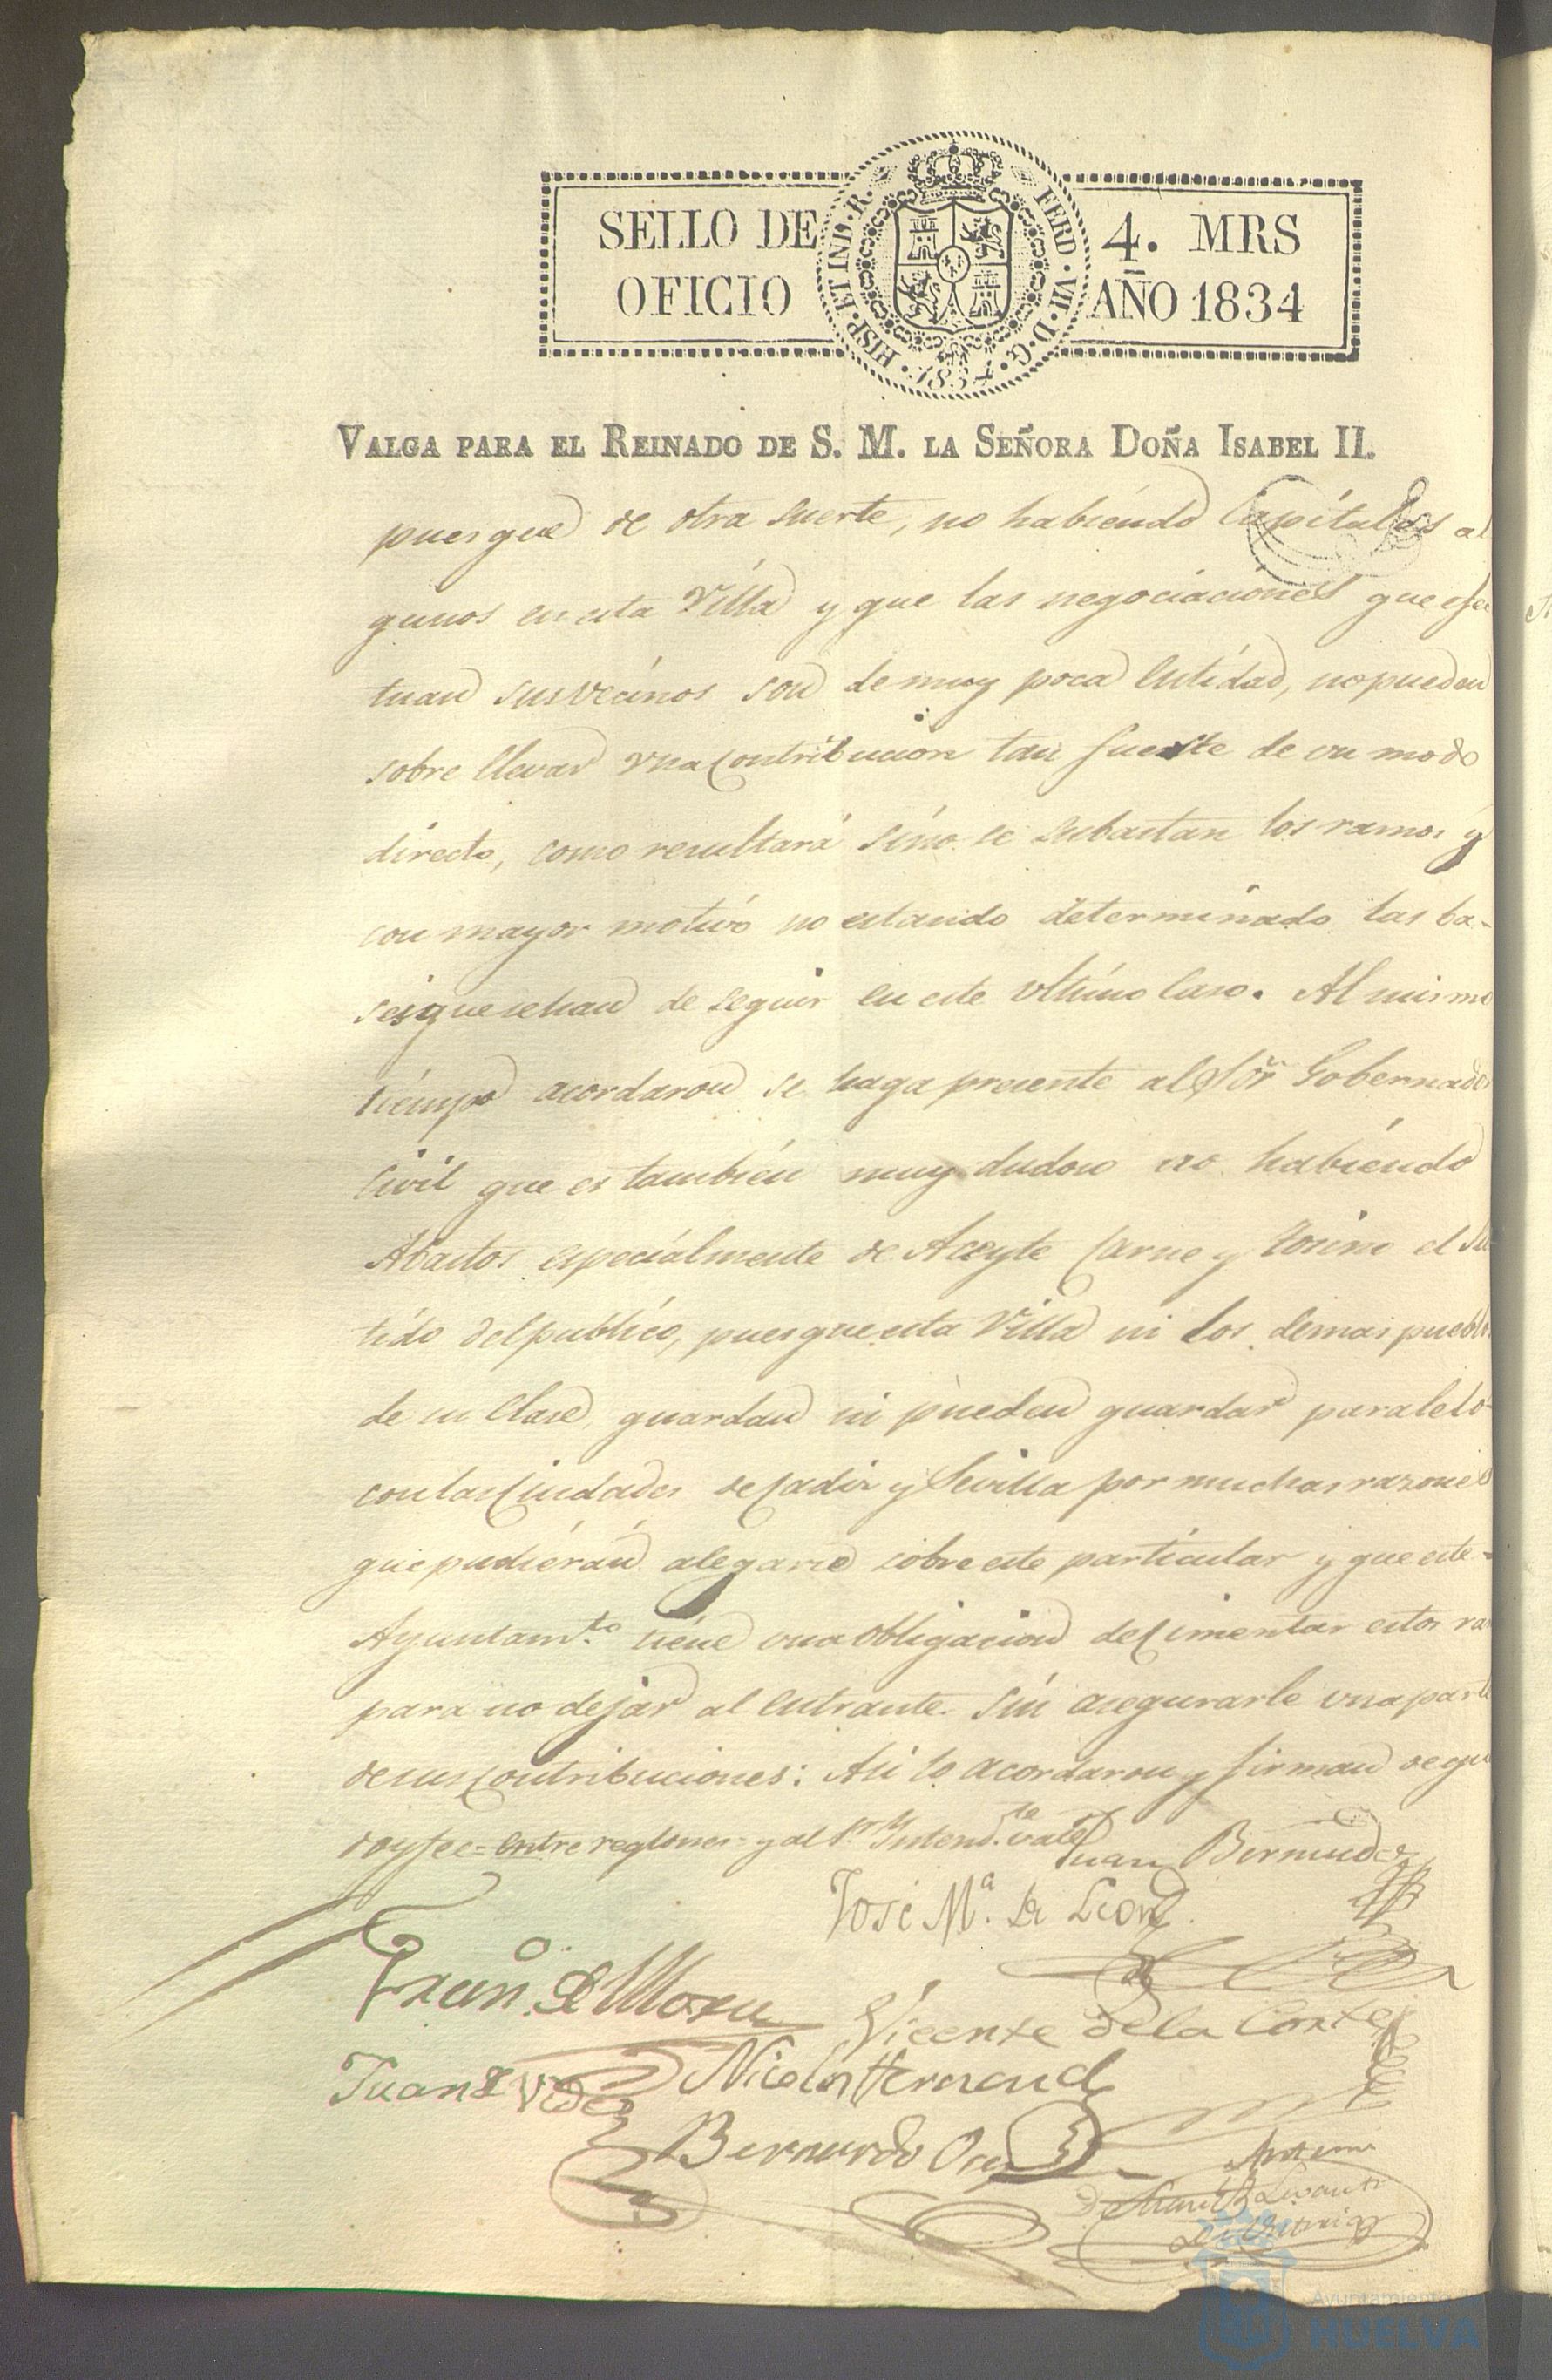 SELLO DE
OFICIO
4. MRS
AÑO 1834
HISP. ET IND. R. FERD. VII. D. G. 1834
VALGA PARA EL REINADO DE S. M. LA SEÑORA DOÑA ISABEL II.
puesque de otra suerte, no habiendo Capitales al
gunos en esta Villa y que las negociaciones que efec
tuan sus vecinos son de muy poca entidad, no pueden
sobre llevar una Contribucion tan fuerte de un modo
directo, como resultará sino se subastan los ramos y
con mayor motivo no estando determinado las ba-
ses que se han de seguir en este ultimo caso. Al mismo
tiempo acordaron se haga presente al Sōr Gobernador
civil que es también muy dudoso no habiendo
Abastos especialmente de Aceyte Carne y tosino el sur
tido del publico, pues que esta Villa ni los demas pueblos
de su clase, guardan ni pueden guardar paralelo
con las Ciudades de Cadiz y Sevilla por muchas razones
que pudiéran alegarse sobre este particular y que este-
Ayuntam.to tiene una obligacion de Cimentar estos ra
para no dejar al entrante sin asegurarle una parte
de sus Contribuciones: Asi lo acordaron y firman de que
doy fee= Entre reglones= y al Sr. Intend.te vale
Juan Bermudez
José M.a de Leon
Fran.co de Mora
Vicente de la Corte
Juan
Nicolas Hernand
Bernardo
Ante mi
Ayuntamiento
HUELVA